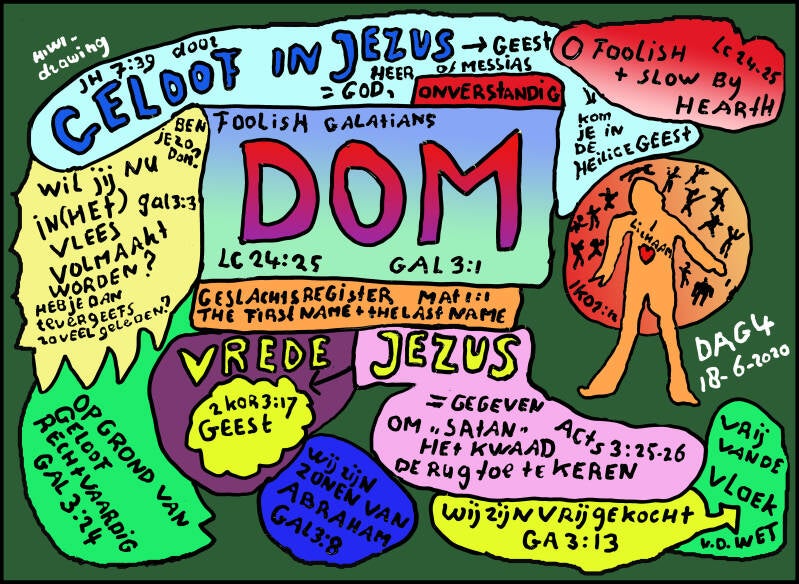 HIWI-
drawing
JH 7:39 door
GELOOF IN JEZUS → GEEST
HEER OF MESSIAS
= GOD,
ONVERSTANDIG
O FOOLISH LC 24:25
+ SLOW BY
HEARTH
kom
JE IN
DE
HEILIGE GEEST
BEN
JE ZO
DOM?
FOOLISH GALATIANS
DOM
LC 24:25 GAL 3:1
WIL JIJ NU
IN (HET) gal 3:3
VLEES
VOLMAAKT
WORDEN?
HEB JE DAN
tevergeefs
zoveel geleden?
LICHAAM
1 KOR:12
GESLACHTSREGISTER MAT 1:1
THE FIRST NAME + THE LAST NAME
DAG 4
18-6-2020
VREDE
2 KOR 3:17
GEEST
JEZUS
= GEGEVEN
OM „SATAN"
HET KWAAD
DE RUG TOE TE KEREN
ACTS 3:25-26
OP GROND VAN
GELOOF
RECHTVAARDIG
GAL 3:24
WIJ ZIJN
ZONEN VAN
ABRAHAM
GAL 3:8
WIJ ZIJN VRIJGEKOCHT
GA 3:13
VRIJ
VAN DE
VLOEK
v.D. WET